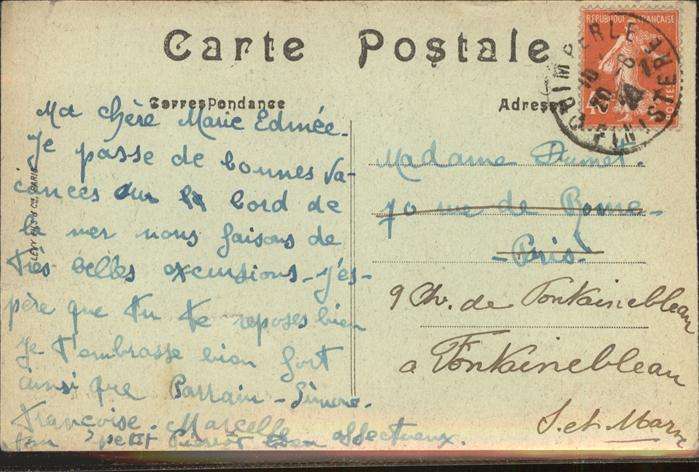 Carte Postale
Correspondance
Adresse
RÉPUBLIQUE FRANÇAISE
QUIMPERLÉ
FINISTÈRE
LEVY FILS & Cie, PARIS
Ma chère Marie Edmée.
Je passe de bonnes va-
cances sur le bord de
la mer nous faisons de
très belles excursions - j'es-
père que tu te reposes bien
je t'embrasse bien fort
ainsi que Parrain - Simone.
Françoise. Marcelle
ton petit Pierrot bien affectueux.
Madame
70 rue de Rome -
- Paris -
9 Ch. de Fontainebleau
a Fontainebleau
S. et Marne